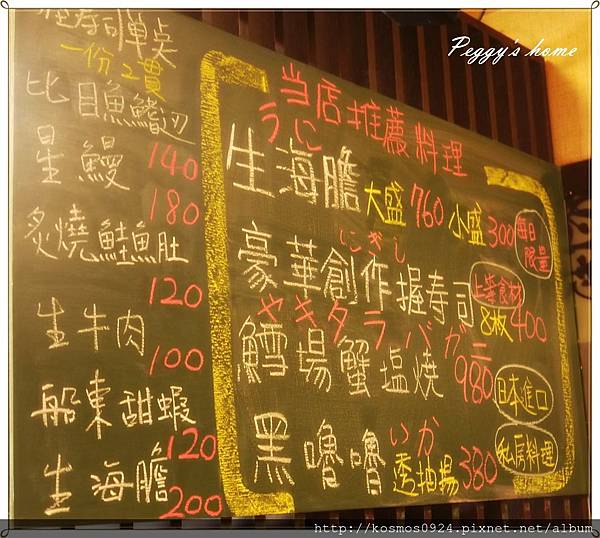 寿司單点
一份2貫
比目魚鰭边 140
星鰻 180
炙燒鮭魚肚 120
生牛肉 100
船凍甜蝦 120
生海膽 200
当店推薦料理
うに
生海膽 大盛760 小盛300 每日限量
にぎし
豪華創作握寿司 上等食材 8枚 400
ヤキタラバガニ
鱈場蟹塩燒 980 日本進口
いか
黑嚕嚕透抽揚 380 私房料理
Peggy's home
http://kosmos0924.pixnet.net/album